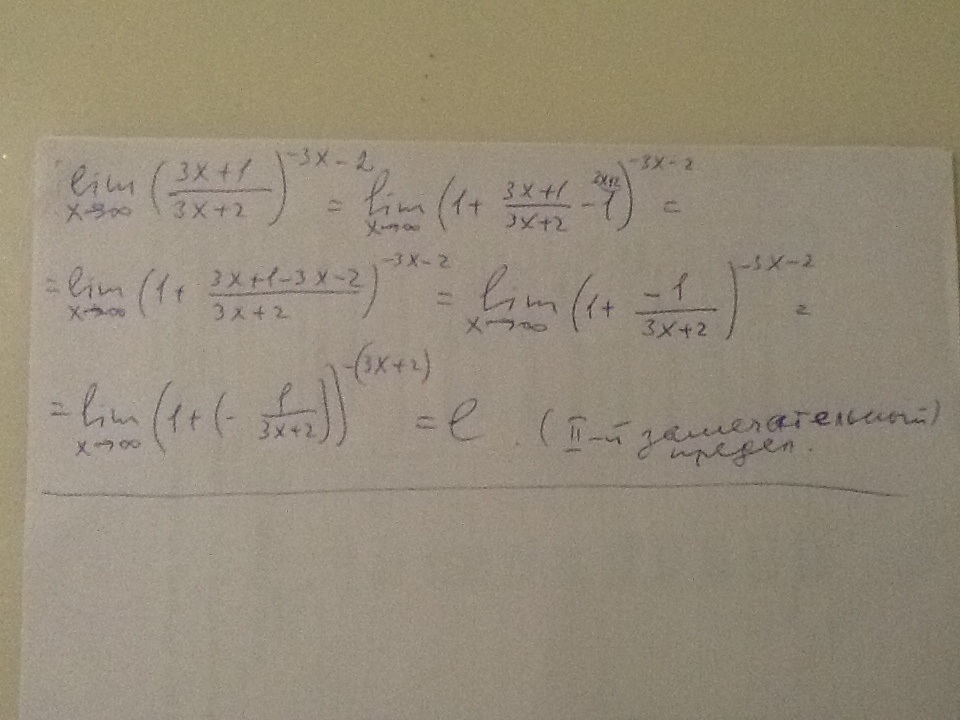 lim x→∞ (3x+1 / 3x+2)^(-3x-2) = lim x→∞ (1 + 3x+1 / 3x+2 - 1)^(-3x-2) =
= lim x→∞ (1 + 3x+1-3x-2 / 3x+2)^(-3x-2) = lim x→∞ (1 + -1 / 3x+2)^(-3x-2) =
= lim x→∞ (1 + (- 1 / 3x+2))^(-(3x+2)) = e. (II-й замечательный)
предел.